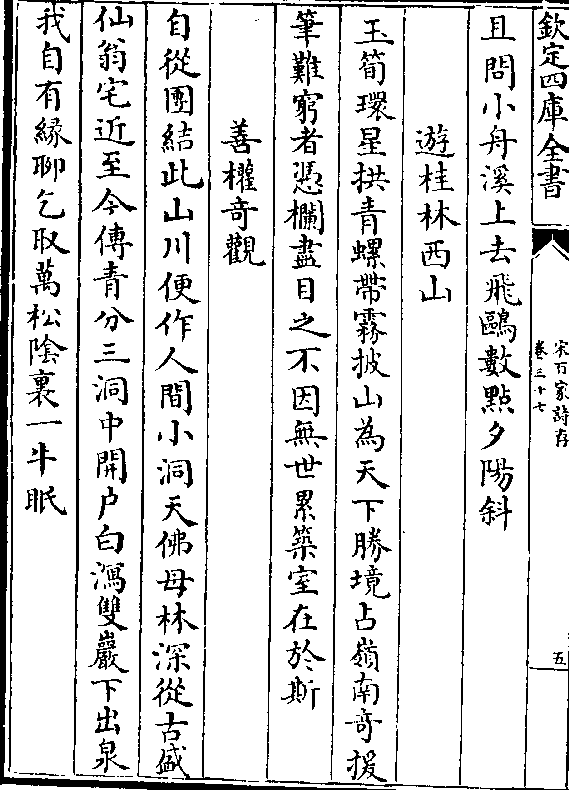 欽定四庫全書
宋百家詩存
卷三十七
五
且問小舟溪上去飛鷗數點夕陽斜
遊桂林西山
玉筍環星拱青螺帶霧披山為天下勝境占嶺南竒援
筆難窮者憑欄盡目之不因無世累築室在於斯
善權竒觀
自從團結此山川便作人間小洞天佛母林深從古盛
仙翁宅近至今傳青分三洞中開户白瀉雙巖下出泉
我自有緣聊乞取萬松陰裏一牛眠